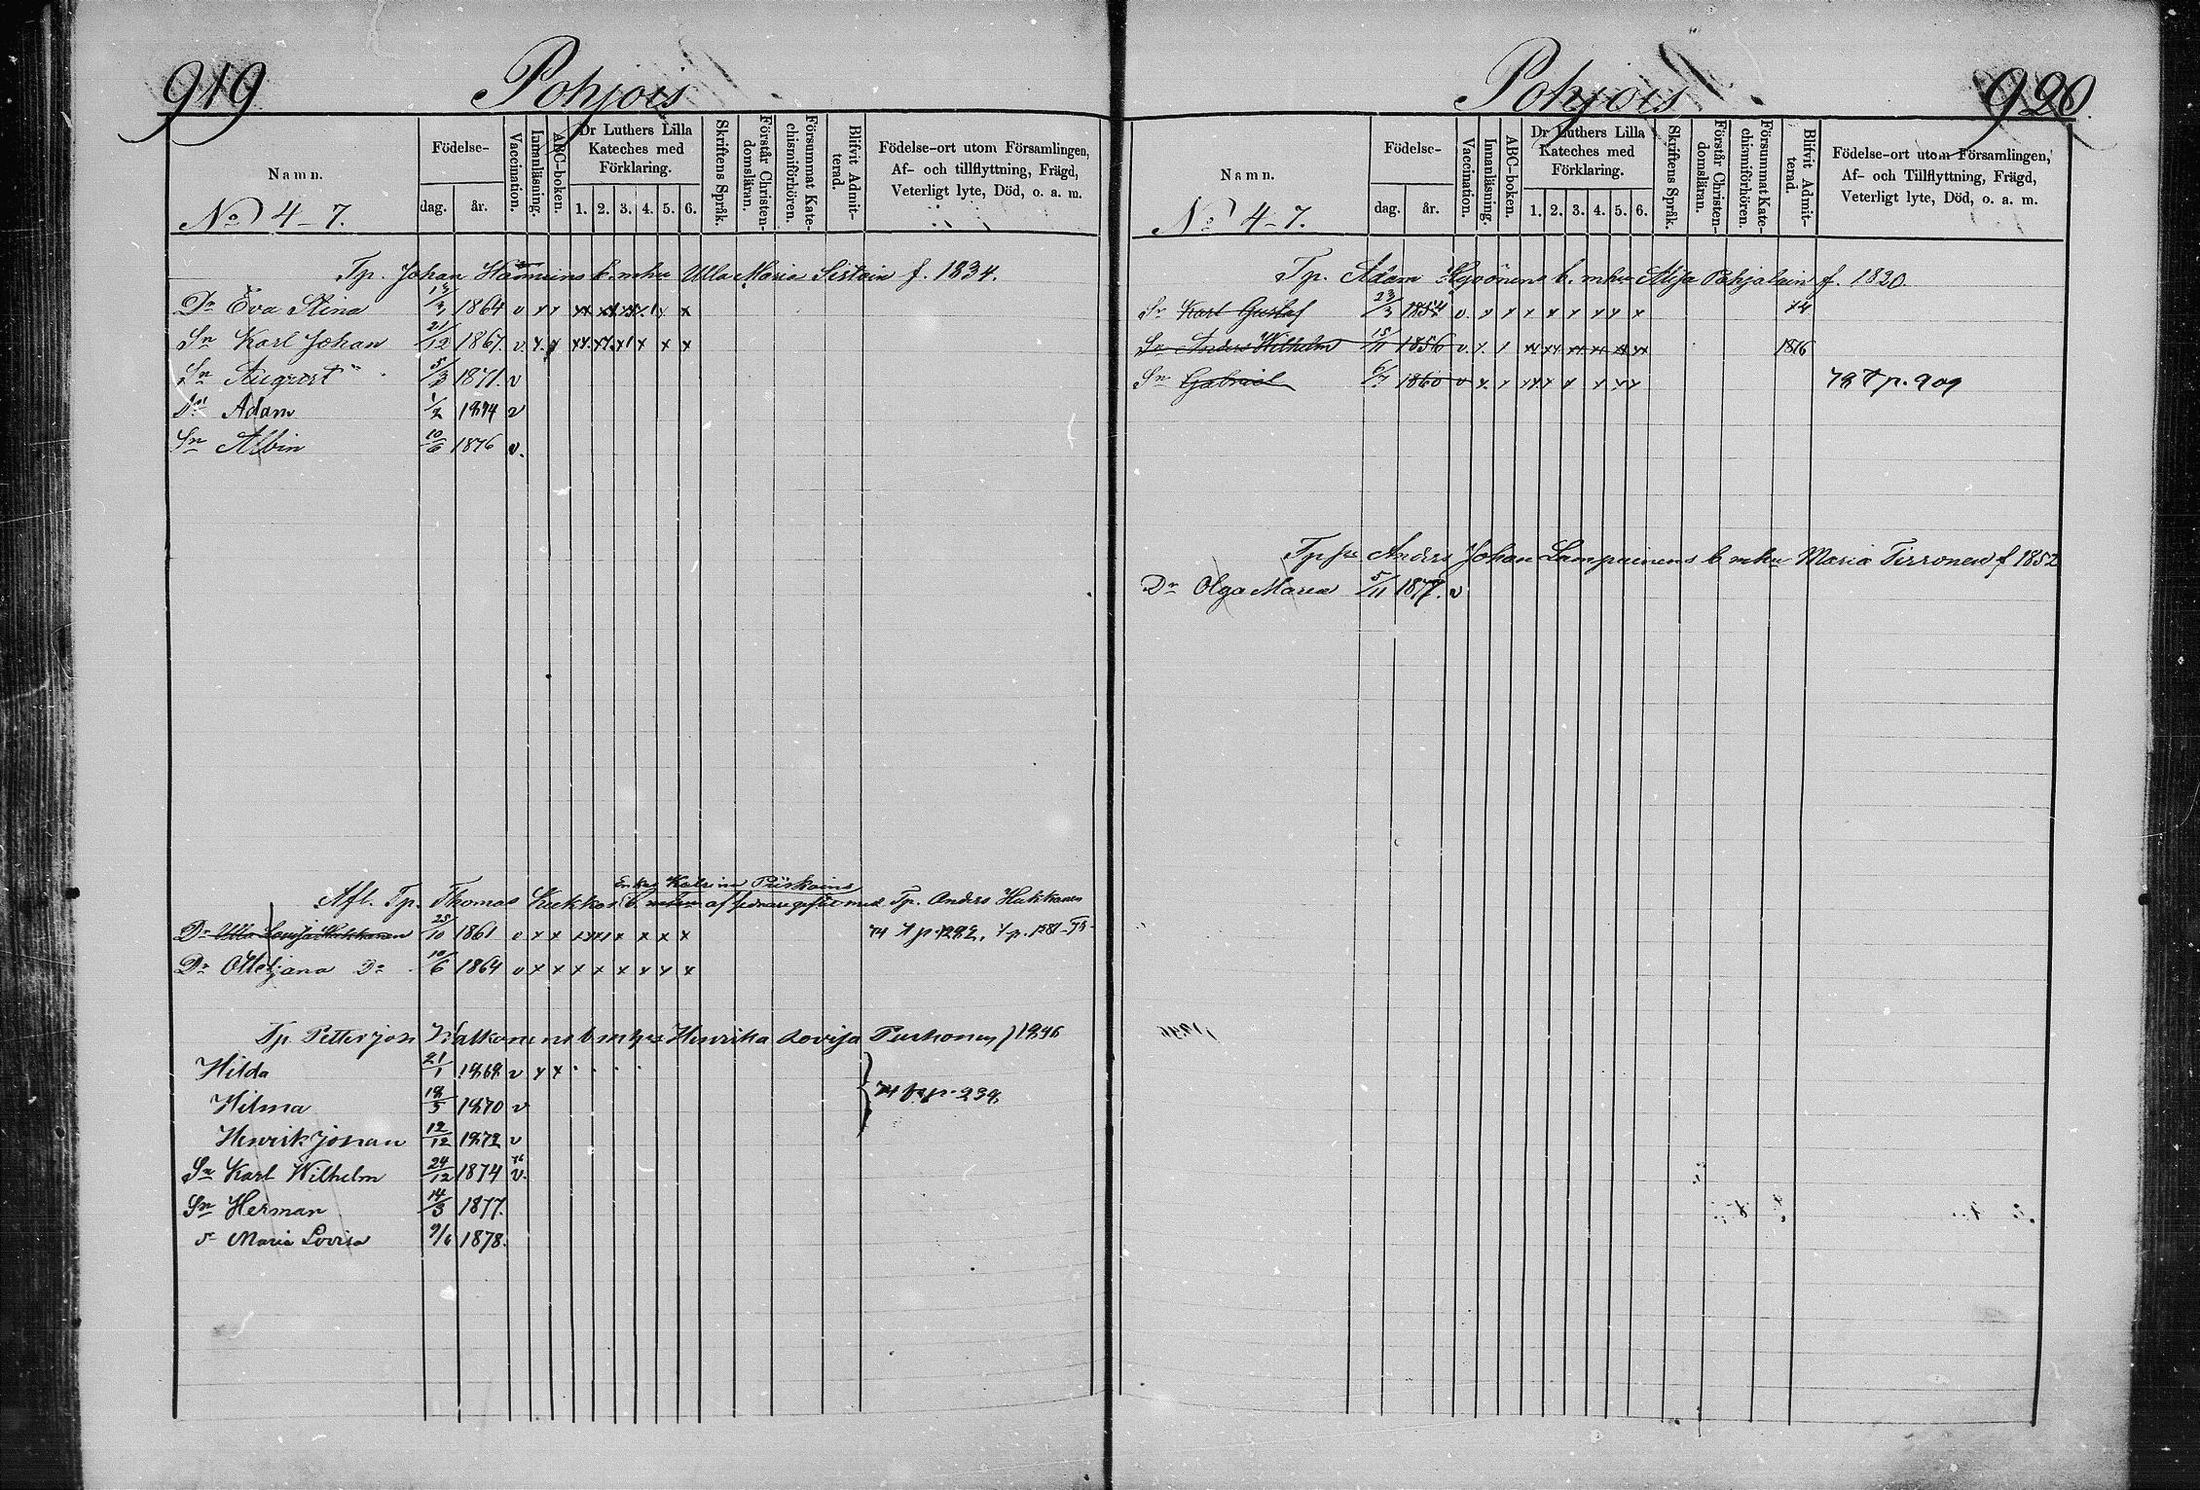 919 Pohjois
Namn.
No 4-7.
Födelse-
dag. år.
Vaccination.
Innanläsning.
ABC-boken.
Dr Luthers Lilla Kateches med Förklaring.
1. 2. 3. 4. 5. 6.
Skriftens Språk.
Förstår Christendomsläran.
Försummat Katechismiförhören.
Blifvit Admitterad.
Födelse-ort utom Församlingen,
Af- och tillflyttning, Frägd,
Veterligt lyte, Död, o. a. m.
Tp. Johan b. m hu Ulla Maria f. 1834.
Dr Eva Stina 13/3 1864 v x x
Sn Karl Johan 21/12 1867. v. x. x
Sn August 5/3 1871. v
Sn Adam 1/2 1874 v
Sn Albin 10/6 1876 v.
Enkn Katrina Piiskoins
Afl. Tp. Thomas af förnare gifte med Tp. Anders Hukkanen
Dr Ulla Lovisa Hukkanen 28/10 1861 v x x
Dr Otteljana Do 10/6 1864 v x x x x x x x x
Tp. Petter Joh b m hu Henrika Lovisa f 1846
Hilda 21/1 1868 v x x
Hilma 18/5 1870 v
Henrik Johan 12/12 1872 v
Sn Karl Wilhelm 24/12 1874 v.
Sn Herman 14/3 1877.
Dr Maria Lovisa 9/6 1878.
Pohjois 920.
Namn.
No 4-7.
Födelse-
dag. år.
Vaccination.
Innanläsning.
ABC-boken.
Dr Luthers Lilla Kateches med Förklaring.
1. 2. 3. 4. 5. 6.
Skriftens Språk.
Förstår Christendomsläran.
Försummat Katechismiförhören.
Blifvit Admitterad.
Födelse-ort utom Församlingen,
Af- och Tillflyttning, Frägd,
Veterligt lyte, Död, o. a. m.
Tp. Adam b. m hu Pohjalain f. 1820.
Sn Karl Gustaf 23/3 1854 v. x x x x x x x x 74
Sn Anders Wilhelm 15/11 1856 v. 1876
Sn Gabriel 6/7 1860 v x 78 p. 909
Anders Johan Lampainens b m hu Maria Tirronen f 1852
Dr Olga Maria 5/11 1877. v